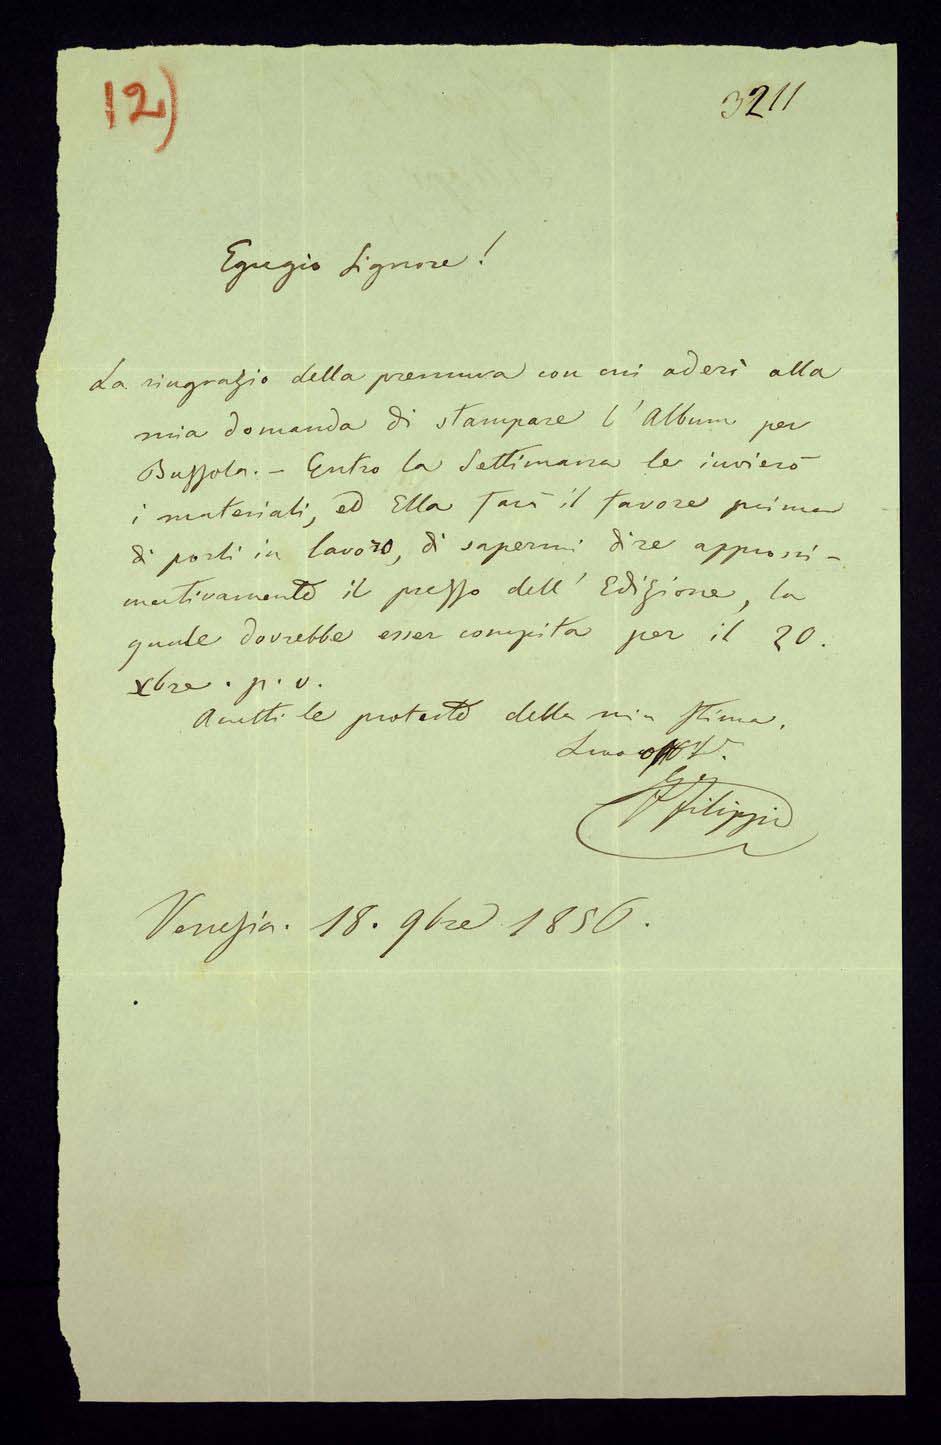 12)
3211
Egregio Signore!
La ringrazio della premura con cui aderì alla
mia domanda di stampare l'Album per
Buzzola. - Entro la Settimana le invierò
i materiali, ed Ella farà il favore prima
di porli in lavoro, di sapermi dire approssi-
mativamente il prezzo dell' Edizione, la
quale dovrebbe esser compita per il 20.
Xbre. p. v.
Accetti le proteste della mia stima.
Filippi
Venezia. 18. 9bre 1856.